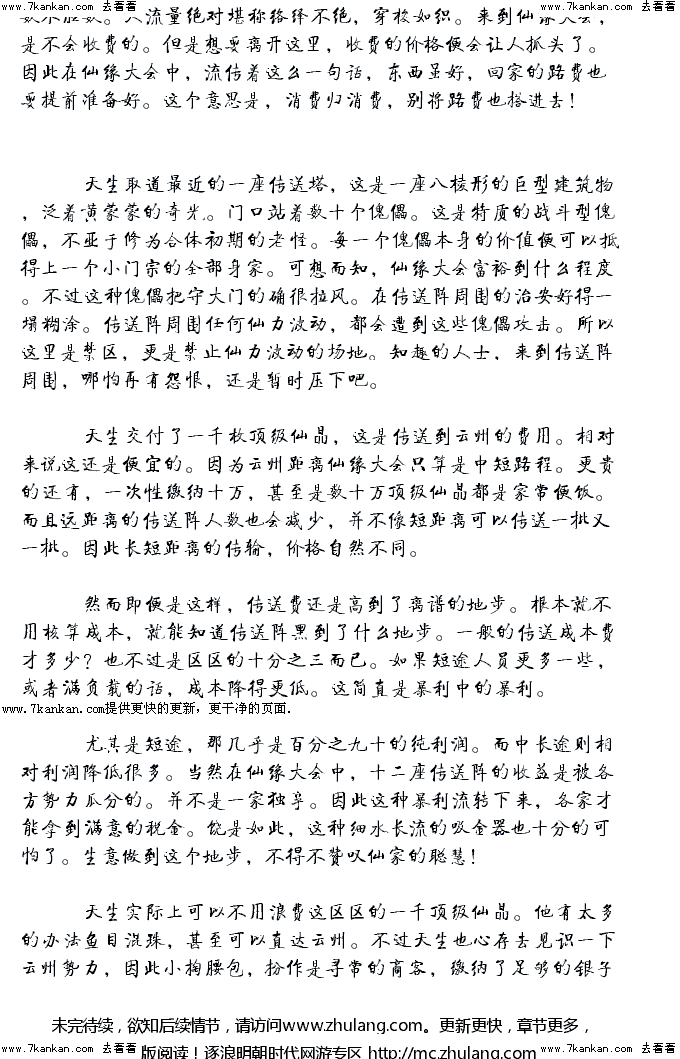 www.7kankan.com 去看看 www.7kankan.com 去看看
数不胜数。人流量绝对堪称络绎不绝，穿梭如织。来到仙缘大会，
是不会收费的。但是想要离开这里，收费的价格便会让人抓头了。
因此在仙缘大会中，流传着这么一句话，东西虽好，回家的路费也
要提前准备好。这个意思是，消费归消费，别将路费也搭进去！
天生取道最近的一座传送塔，这是一座八棱形的巨型建筑物
，泛着黄蒙蒙的奇光。门口站着数十个傀儡。这是特质的战斗型傀
儡，不亚于修为合体初期的老怪。每一个傀儡本身的价值便可以抵
得上一个小门宗的全部身家。可想而知，仙缘大会富裕到什么程度
。不过这种傀儡把守大门的确很拉风。在传送阵周围的治安好得一
塌糊涂。传送阵周围任何仙力波动，都会遭到这些傀儡攻击。所以
这里是禁区，更是禁止仙力波动的场地。知趣的人士，来到传送阵
周围，哪怕再有怨恨，还是暂时压下吧。
天生交付了一千枚顶级仙晶，这是传送到云州的费用。相对
来说这还是便宜的。因为云州距离仙缘大会只算是中短路程。更贵
的还有，一次性缴纳十万，甚至是数十万顶级仙晶都是家常便饭。
而且远距离的传送阵人数也会减少，并不像短距离可以传送一批又
一批。因此长短距离的传输，价格自然不同。
然而即便是这样，传送费还是高到了离谱的地步。根本就不
用核算成本，就能知道传送阵黑到了什么地步。一般的传送成本费
才多少？也不过是区区的十分之三而已。如果短途人员更多一些，
或者满负载的话，成本降得更低。这简直是暴利中的暴利。
www.7kankan.com提供更快的更新，更干净的页面.
尤其是短途，那几乎是百分之九十的纯利润。而中长途则相
对利润降低很多。当然在仙缘大会中，十二座传送阵的收益是被各
方势力瓜分的。并不是一家独享。因此这种暴利流转下来，各家才
能拿到满意的税金。饶是如此，这种细水长流的吸金器也十分的可
怕了。生意做到这个地步，不得不赞叹仙家的聪慧！
天生实际上可以不用浪费这区区的一千顶级仙晶。他有太多
的办法鱼目混珠，甚至可以直达云州。不过天生也心存去见识一下
云州势力，因此小掏腰包，扮作是寻常的商客，缴纳了足够的银子
未完待续，欲知后续情节，请访问www.zhulang.com。更新更快，章节更多，
www.7kankan.com 去看看 www.7kankan.com 去看看
版阅读！逐浪明朝时代网游专区 http://mc.zhulang.com